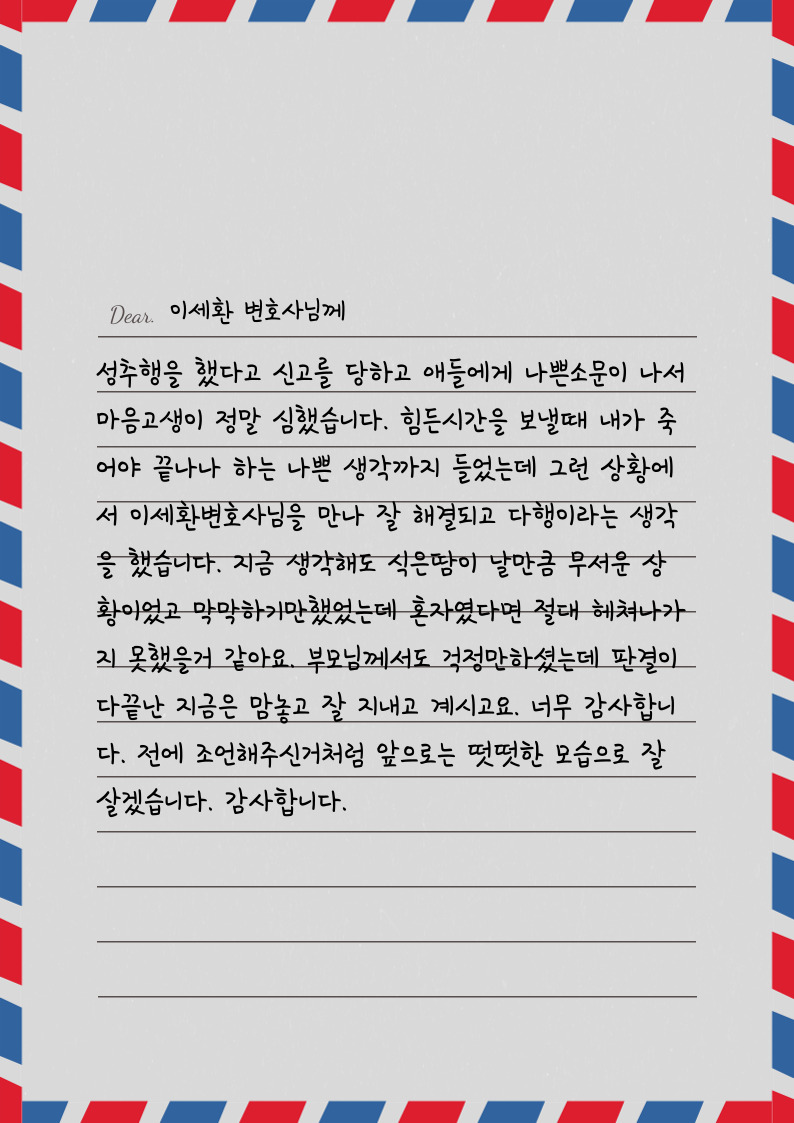 Dear. 이세환 변호사님께
성추행을 했다고 신고를 당하고 애들에게 나쁜소문이 나서
마음고생이 정말 심했습니다. 힘든시간을 보낼때 내가 죽
어야 끝나나 하는 나쁜 생각까지 들었는데 그런 상황에
서 이세환변호사님을 만나 잘 해결되고 다행이라는 생각
을 했습니다. 지금 생각해도 식은땀이 날만큼 무서운 상
황이었고 막막하기만했었는데 혼자였다면 절대 헤쳐나가
지 못했을거 같아요. 부모님께서도 걱정만하셨는데 판결이
다끝난 지금은 맘놓고 잘 지내고 계시고요. 너무 감사합니
다. 전에 조언해주신거처럼 앞으로는 떳떳한 모습으로 잘
살겠습니다. 감사합니다.